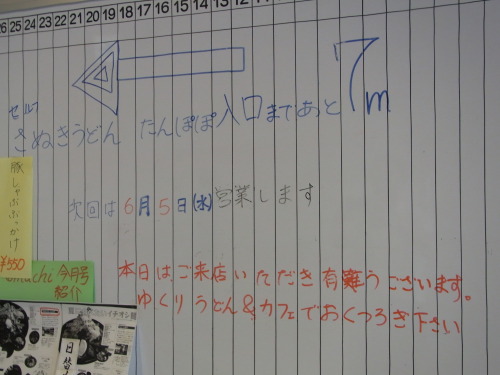 26 25 24 23 22 21 20 19 18 17 16 15 14 13 12
7m
セルフ
さぬきうどん たんぽぽ入口まであと
次回は6月5日(水)営業します
豚しゃぶぶっかけ
¥550
今月号
紹介
本日はご来店いただき有難うございます。
ゆくりうどん&カフェでおくつろぎ下さい
イチオシ麺
日替